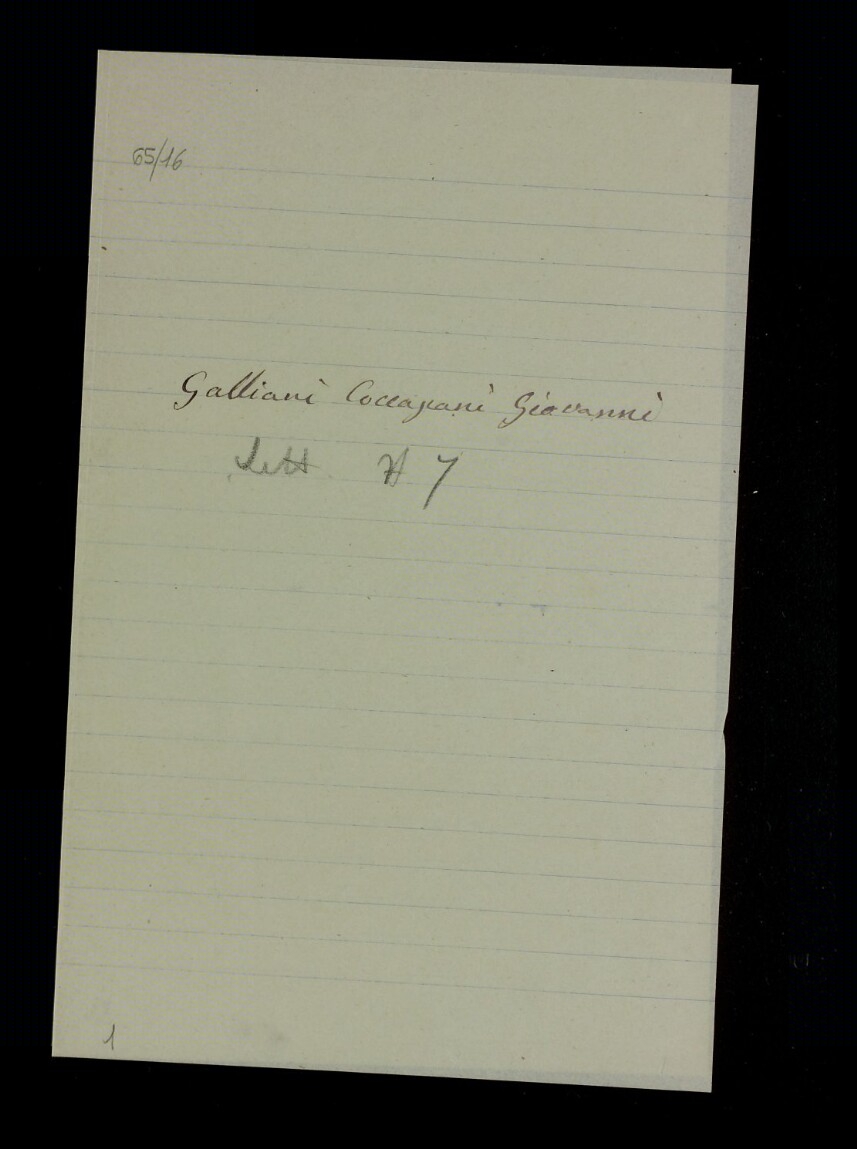 65/16
Galliani Coccapani Giovanni
Lett. N 7
1